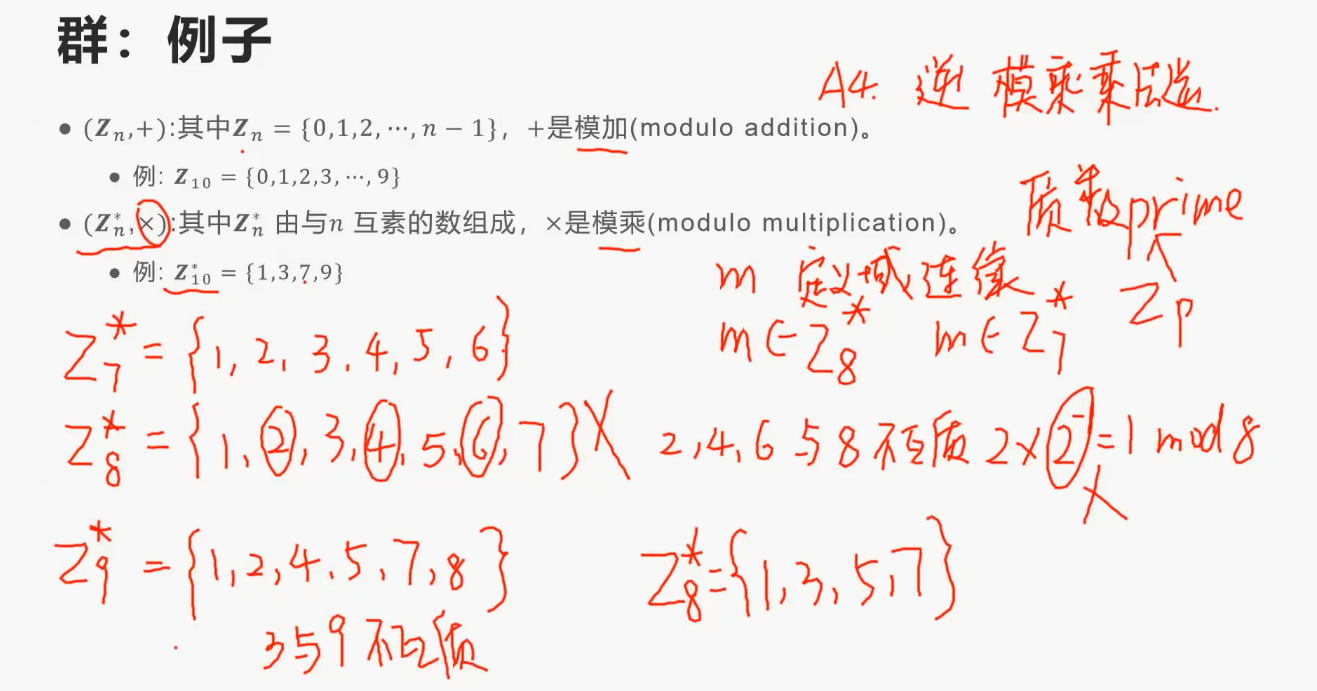 群：例子
A4. 逆 模乘乘法逆.
● (Zₙ,+):其中Zₙ = {0,1,2,⋯,n − 1}，+是模加(modulo addition)。
● 例: Z₁₀ = {0,1,2,3,⋯,9}
质数prime
● (Zₙ*,×):其中Zₙ* 由与n 互素的数组成，×是模乘(modulo multiplication)。
● 例: Z₁₀* = {1,3,7,9}
m 定义域连续
Zp
m∈Z₈* m∈Z₇*
Z₇* = {1, 2, 3, 4, 5, 6}
Z₈* = {1, 2, 3, 4, 5, 6, 7} X 2,4,6与8不互质 2×2⁻=1 mod 8
X
Z₉* = {1,2,4,5,7,8} Z₈*={1,3,5,7}
3与9不互质